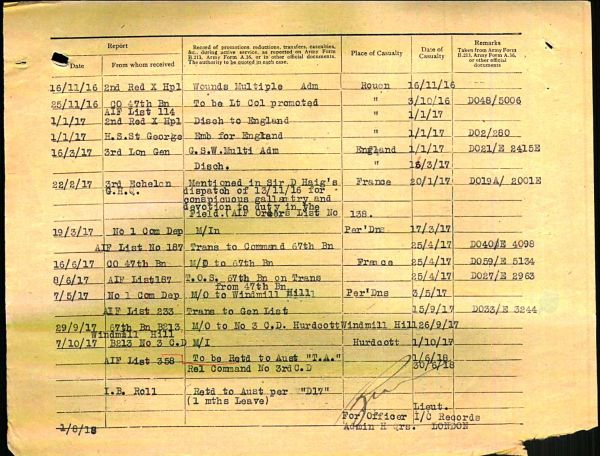 Report
Record of promotions reductions, transfers, casualties, &c., during active service, as reported on Army Form B.213, Army Form A.36, or in other official documents. The authority to be quoted in each case.
Place of Casualty
Date of Casualty
Remarks
Taken from Army Form B.213, Army Form A.36, or other official documents
Date From whom received
16/11/16 2nd Red X Hpl Wounds Multiple Adm Rouen 16/11/16
25/11/16 CO 47th Bn To be Lt Col promoted " 3/10/16 DO48/5006
AIF List 114
1/1/17 2nd Red X Hpl Disch to England " 1/1/17
1/1/17 H.S.St George Emb for England " 1/1/17 DO2/280
16/3/17 3rd Lon Gen G.S.W.Multi Adm England 1/1/17 DO21/E 2415E
Disch. " 15/3/17
22/2/17 3rd Echelon Mentioned in Sir D Haig's France 20/1/17 DO19A/ 2001E
G.H.Q. dispatch of 13/11/16 for
conspiguous gallantry and
devotion to duty in the
Field.(AIF Orders List No 138.
19/3/17 No 1 Com Dep M/In Per'Dns 17/3/17
AIF List No 187 Trans to Command 67th Bn 25/4/17 DO40/E 4098
16/6/17 CO 47th Bn M/O to 67th Bn France 25/4/17 DO59/E 5134
8/6/17 AIF List187 T.O.S. 67th Bn on Trans 25/4/17 DO27/E 2963
from 47th Bn
7/5/17 No 1 Com Dep M/O to Windmill Hill Per'Dns 3/5/17
AIF List 233 Trans to Gen List 15/9/17 DO33/E 3244
29/9/17 67th Bn B213 M/O to No 3 C.D. Hurdcott Windmill Hill 26/9/17
Windmill Hill
7/10/17 B213 No 3 C.D M/I Hurdcott 1/10/17
AIF List 358 To be Retd to Aust "T.A." 1/6/18
Rel Command No 3rd C.D 30/6/18
I.B. Roll Retd to Aust per "D17"
(1 mths Leave)
Lieut.
For Officer I/C Records
1/8/18 Admin H qrs. LONDON